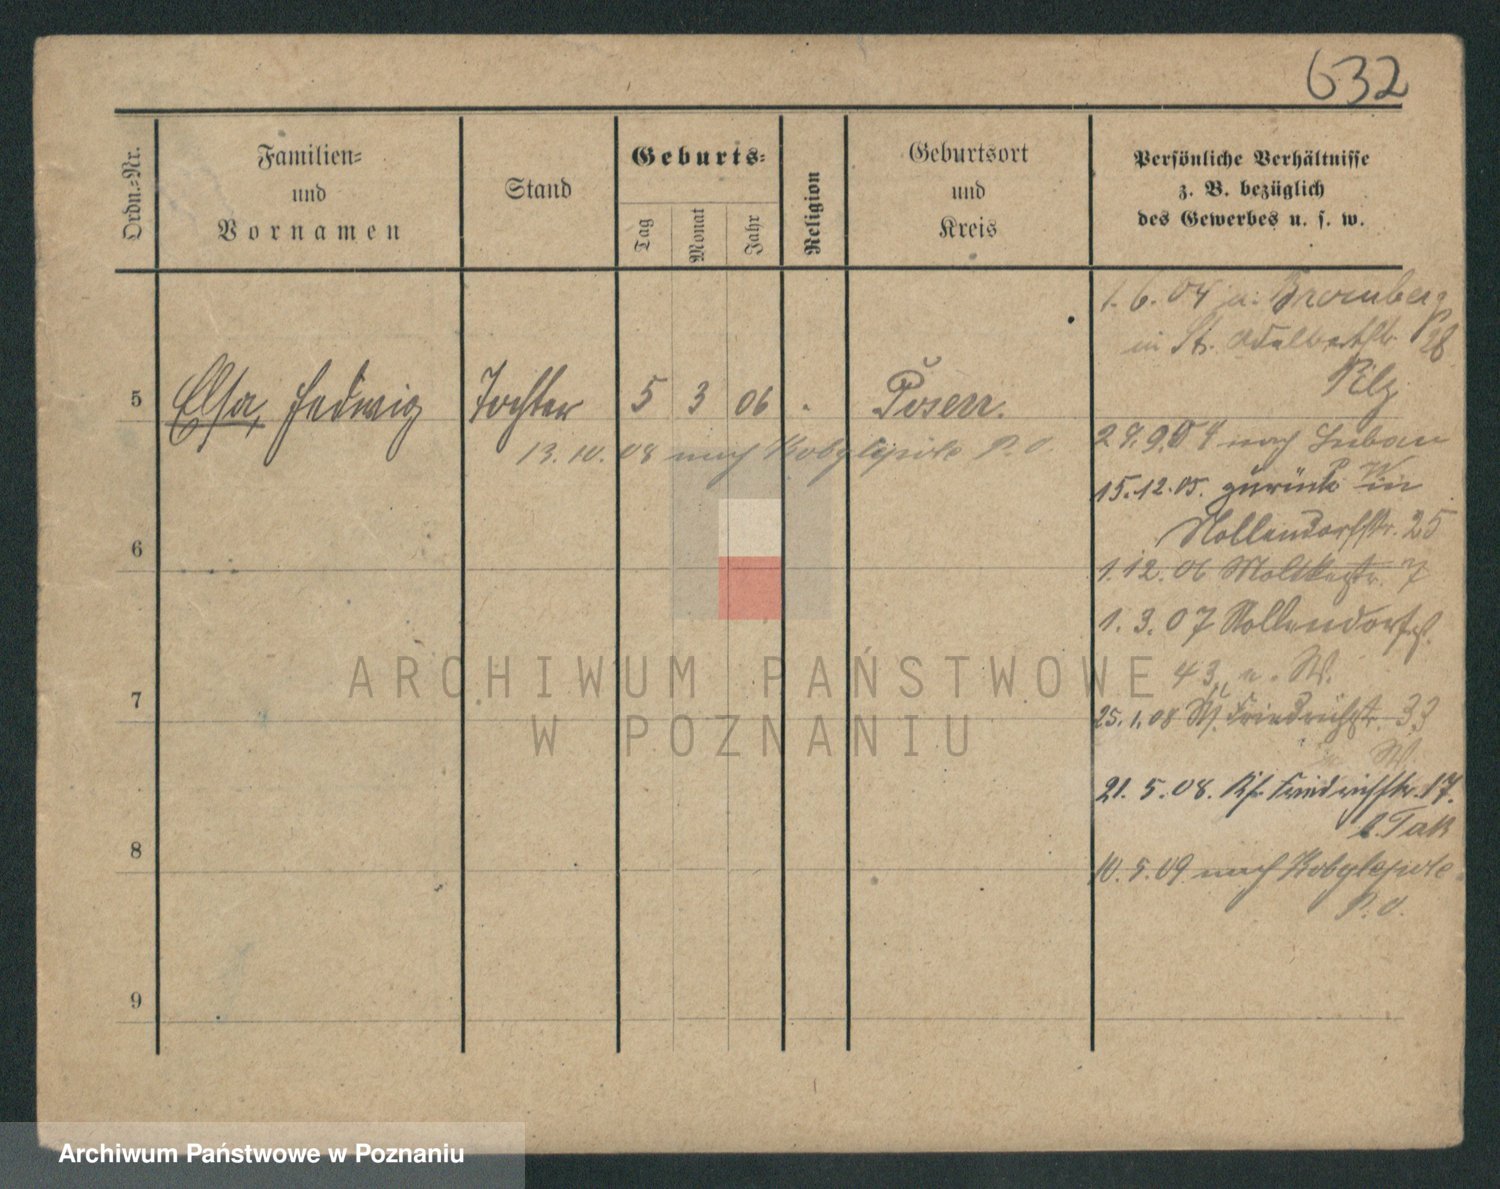 632
Ordn.-Nr.
Familien-
und
Vornamen
Stand
Geburts-
Tag
Monat
Jahr
Religion
Geburtsort
und
Kreis
Persönliche Verhältnisse
z. B. bezüglich
des Gewerbes u. s. w.
1.6.04 n. Bromberg
in St. Adalbertstr. 28
Pilz
5 Elsa, Hedwig Tochter 5 3 06 Posen.
13.10.08 nach Kobylepole P.O.
27.9.04 nach Luban
15.12.05. zurück in W
Nollendorfstr. 25
6
1.12.06 Moltkestr. 7
1.3.07 Nollendorfst.
43, W.
7
25.1.08 W. Friedrichstr. 33
W.
21.5.08. Kf. Friedrichstr. 17.
b. Tak
8
10.5.09 nach Kobylepole
P.O.
9
ARCHIWUM PAŃSTWOWE
W POZNANIU
Archiwum Państwowe w Poznaniu